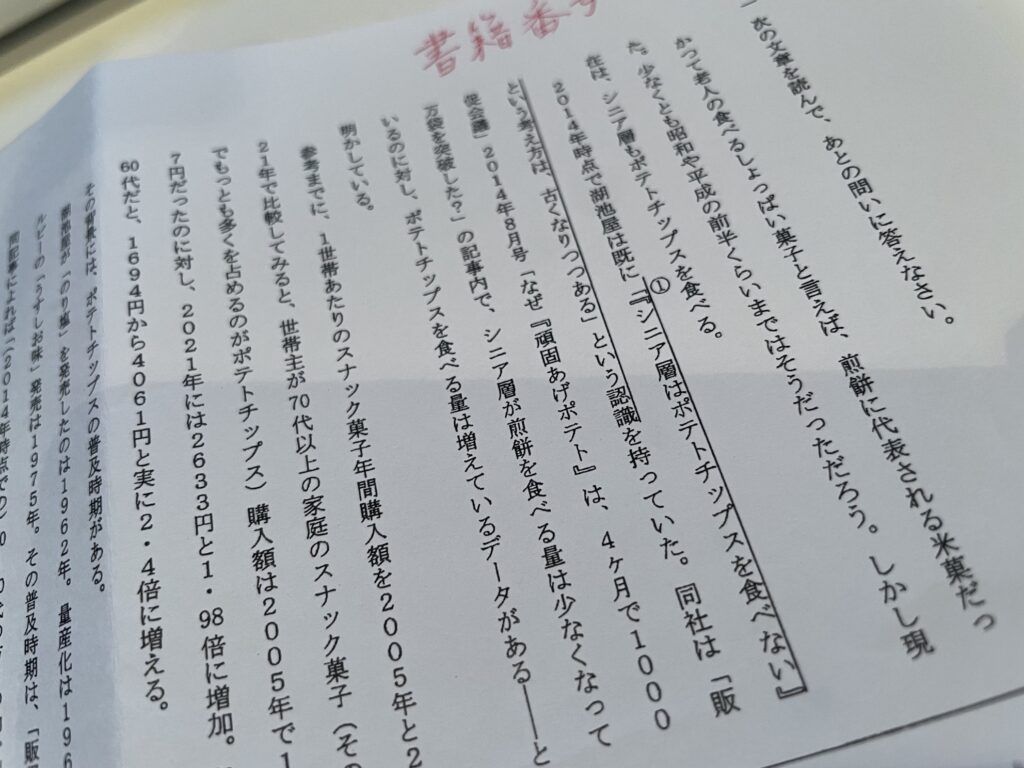 書籍番号
次の文章を読んで、あとの問いに答えなさい。
かつて老人の食べるしょっぱい菓子と言えば、煎餅に代表される米菓だっ
た。少なくとも昭和や平成の前半くらいまではそうだっただろう。しかし現
在は、シニア層もポテトチップスを食べる。
①
2014年時点で湖池屋は既に『シニア層はポテトチップスを食べない』
という考え方は、古くなりつつある」という認識を持っていた。同社は「販
促会議」2014年8月号「なぜ『頑固あげポテト』は、4ヶ月で1000
万袋を突破した?」の記事内で、シニア層が煎餅を食べる量は少なくなって
いるのに対し、ポテトチップスを食べる量は増えているデータがある――と
明かしている。
参考までに、1世帯あたりのスナック菓子年間購入額を2005年と2
21年で比較してみると、世帯主が70代以上の家庭のスナック菓子(その
でもっとも多くを占めるのがポテトチップス)購入額は2005年で1
7円だったのに対し、2021年には2633円と1・98倍に増加。
60代だと、1694円から4061円と実に2・4倍に増える。
その背景には、ポテトチップスの普及時期がある。
湖池屋が「のり塩」を発売したのは1962年。量産化は196
ルビーの「うすしお味」発売は1975年。その普及時期は、「販
同記事によれば「(2014年時点での)